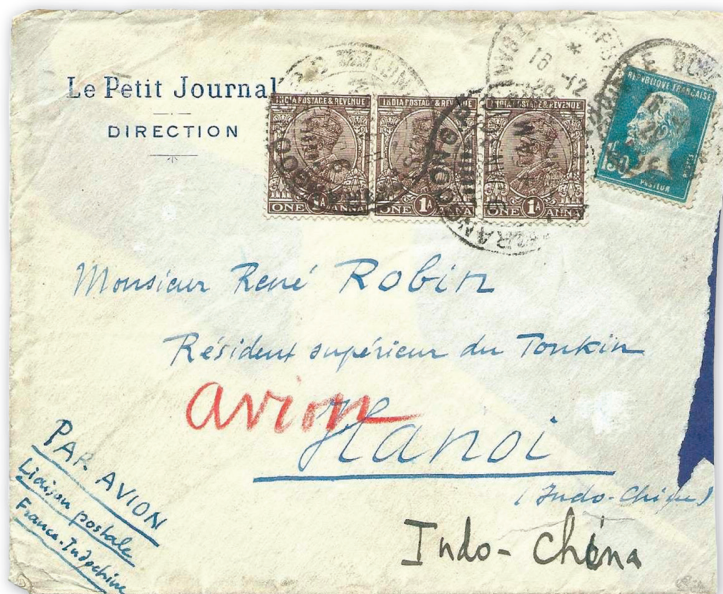 Le Petit Journal
DIRECTION
INDIA POSTAGE & REVENUE
ONE 1A ANNA
INDIA POSTAGE & REVENUE
ONE 1A ANNA
INDIA POSTAGE & REVENUE
ONE 1A ANNA
REPUBLIQUE FRANÇAISE
PASTEUR
18
-12
Monsieur René Robin
Résident supérieur du Tonkin
avion
Hanoi
(Indo-Chine)
Indo-China
PAR AVION
Liaison postale
France-Indochine